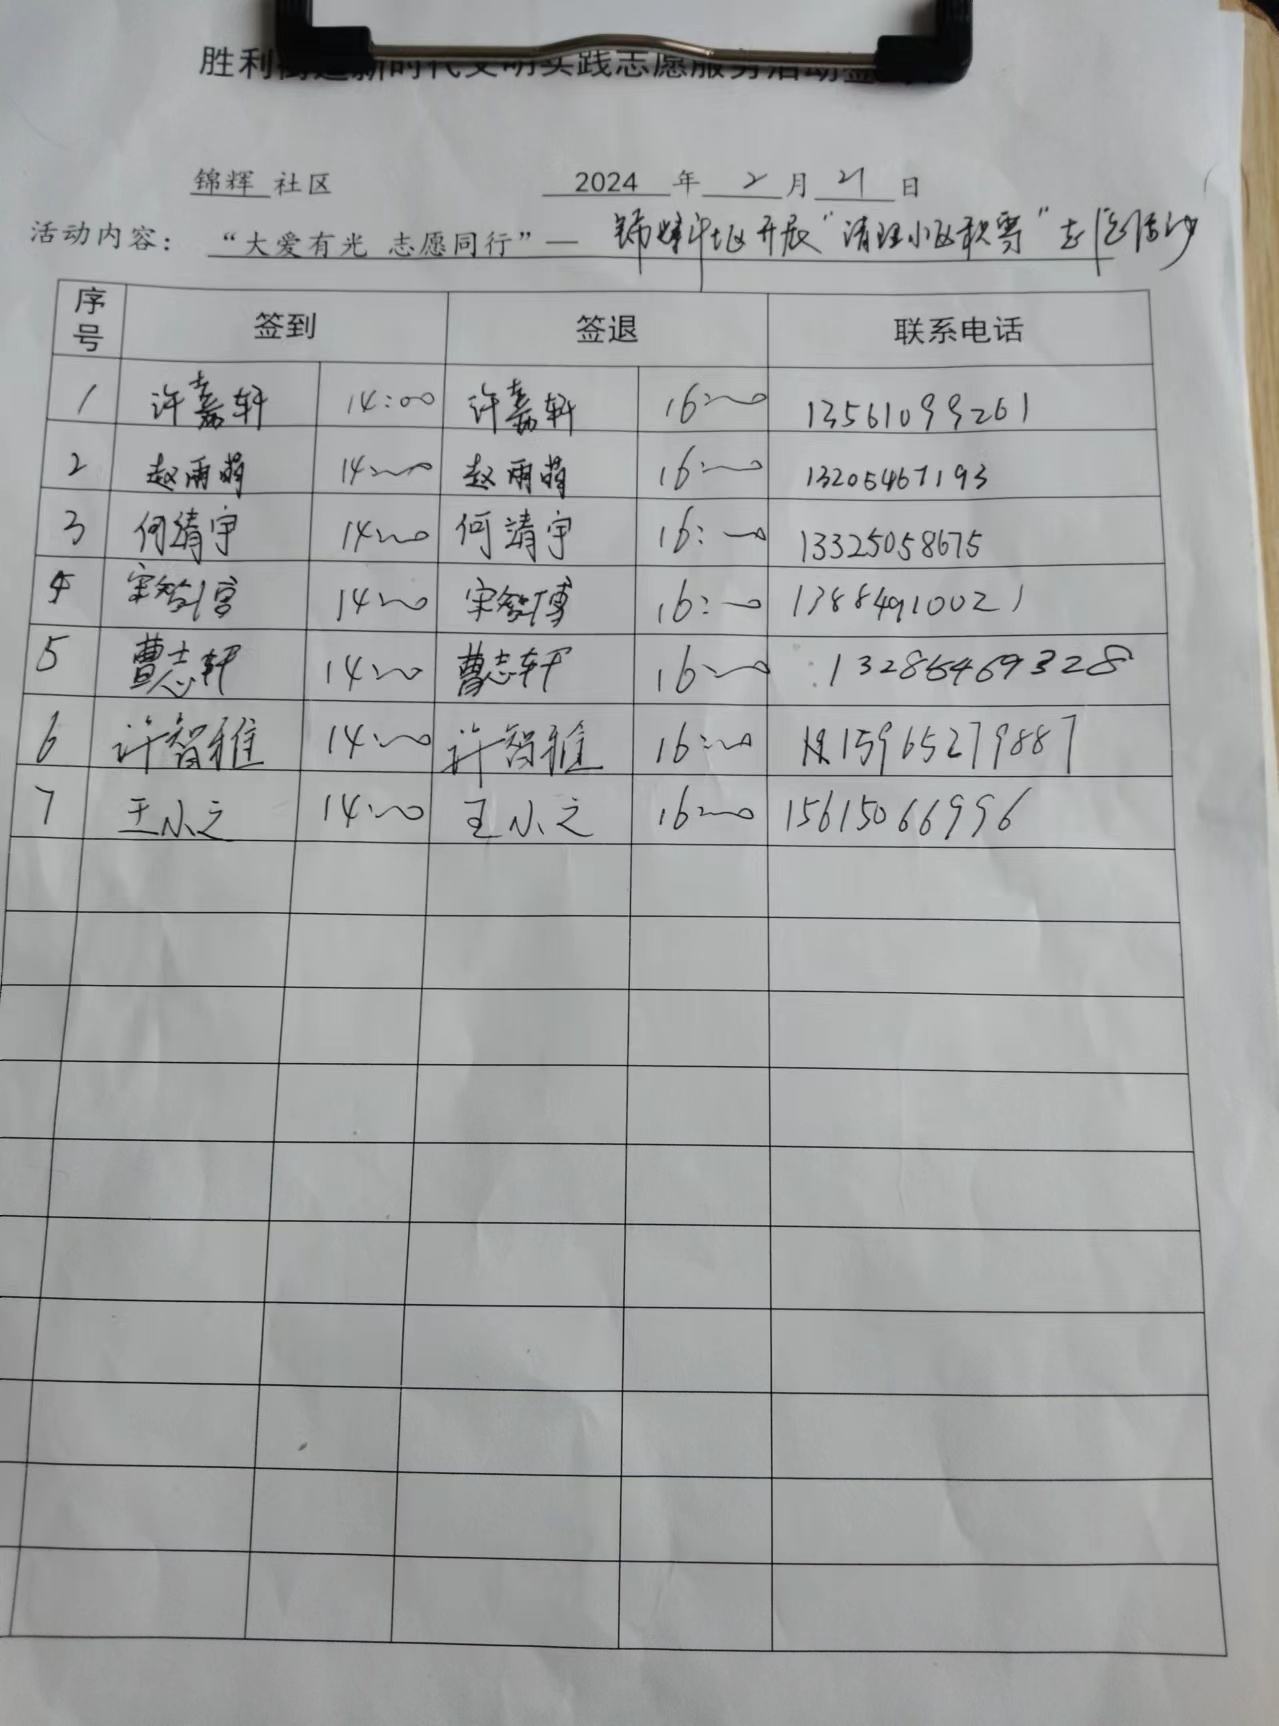 胜利街道新时代文明实践志愿服务活动签
锦辉 社区 2024 年 2 月 21 日
活动内容： “大爱有光 志愿同行”— 锦辉社区开展“清理小区积雪”志愿活动
序号 签到 签退 联系电话
1 许嘉轩 14:00 许嘉轩 16:00 13561099261
2 赵雨萌 14:00 赵雨萌 16:00 13205467193
3 何靖宇 14:00 何靖宇 16:00 13325058675
4 宋智博 14:00 宋智博 16:00 13884910021
5 曹志轩 14:00 曹志轩 16:00 13285469328
6 许智雅 14:00 许智雅 16:00 15965279887
7 王小之 14:00 王小之 16:00 15615066996